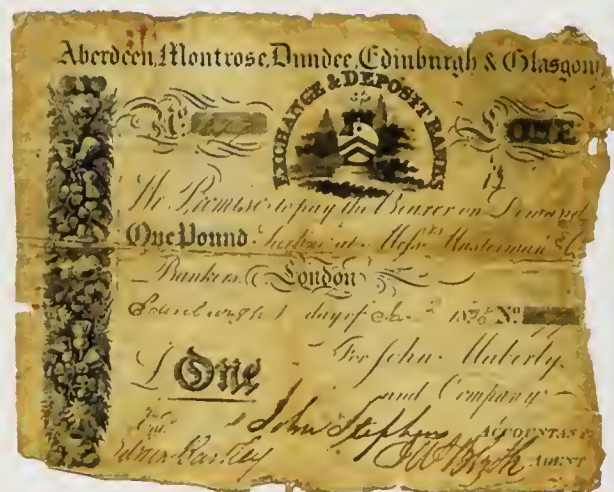 Aberdeen, Montrose, Dundee, Edinburgh & Glasgow
EXCHANGE & DEPOSIT BANKS
No.
£ ONE
We Promise to pay the Bearer on Demand
One Pound Sterling at Messrs. Masterman & Co.
Bankers London
Edinburgh 1 day of No.
£ One
For John Maberly
and Company
John Stephens ACCOUNTANT
AGENT